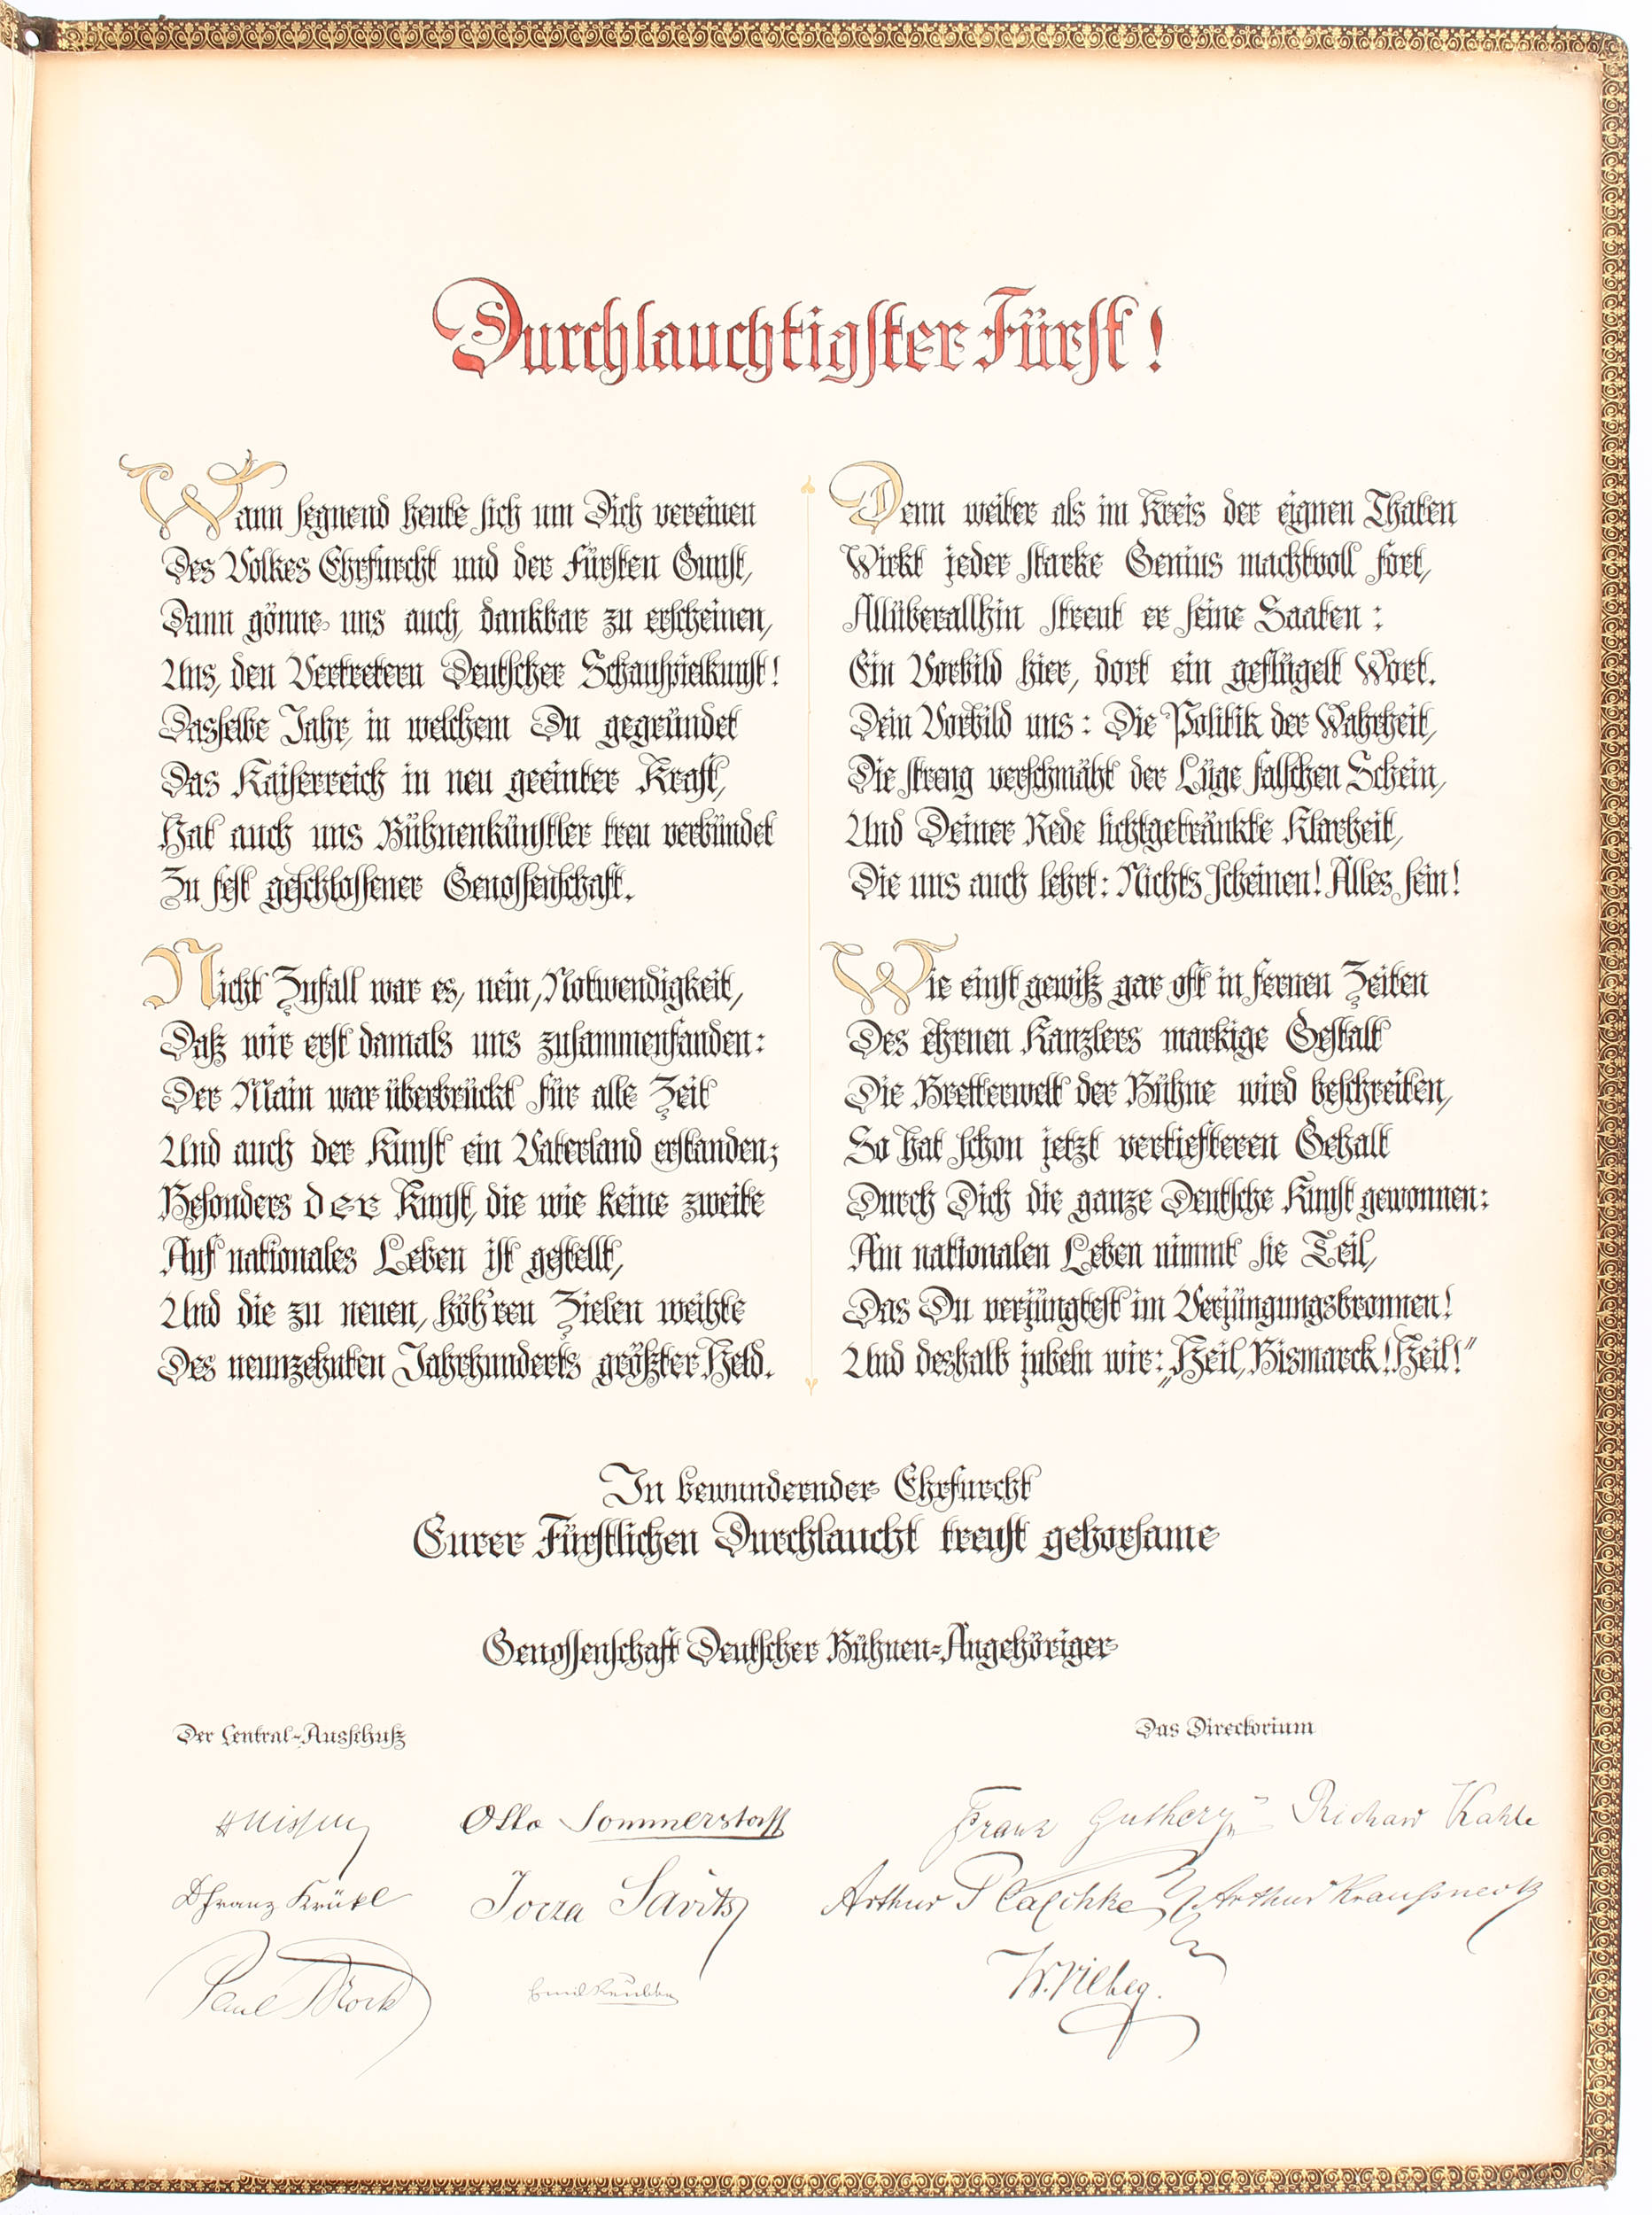 Durchlauchtigster Fürst!
Wann segnend heute sich um Dich vereinen
Des Volkes Ehrfurcht und der Fürsten Gunst,
Dann gönne uns auch, dankbar zu erscheinen,
Uns, den Vertretern Deutscher Schauspielkunst!
Dasselbe Jahr, in welchem Du gegründet
Das Kaiserreich in neu geeinter Kraft,
Hat auch uns Bühnenkünstler treu verbündet
Zu fest geschlossener Genossenschaft.
Nicht Zufall war es, nein, Notwendigkeit,
Daß wir erst damals uns zusammenfanden:
Der Main war überbrückt für alle Zeit
Und auch der Kunst ein Vaterland erstanden;
Besonders der Kunst, die wie keine zweite
Auf nationales Leben ist gestellt,
Und die zu neuen, höh'ren Zielen weihte
Des neunzehnten Jahrhunderts größter Held.
Denn weiter als im Kreis der eignen Thaten
Wirkt jeder starke Genius machtvoll fort,
Allüberallhin streut er seine Saaten:
Ein Vorbild hier, dort ein geflügelt Wort.
Dein Vorbild uns: Die Politik der Wahrheit,
Die streng verschmäht der Lüge falschen Schein,
Und Deiner Rede lichtgetränkte Klarheit,
Die uns auch lehrt: Nichts scheinen! Alles sein!
Wie einst gewiß gar oft in fernen Zeiten
Des ehrnen Kanzlers markige Gestalt
Die Bretterwelt der Bühne wird beschreiten,
So hat schon jetzt vertiefteren Gehalt
Durch Dich die ganze Deutsche Kunst gewonnen:
Am nationalen Leben nimmt sie Teil,
Das Du verjüngtest im Verjüngungsbronnen!
Und deshalb jubeln wir: „Heil, Bismarck! Heil!"
In bewundernder Ehrfurcht
Eurer Fürstlichen Durchlaucht treust gehorsame
Genossenschaft Deutscher Bühnen-Angehöriger
Der Central-Ausschuß
Das Directorium
HNissen Otto Sommerstorff Franz Guthery Richard Kahle
Dr Franz Krükl Jocza Savits Arthur Plaschke Arthur Kraußneck
Paul Block Emil